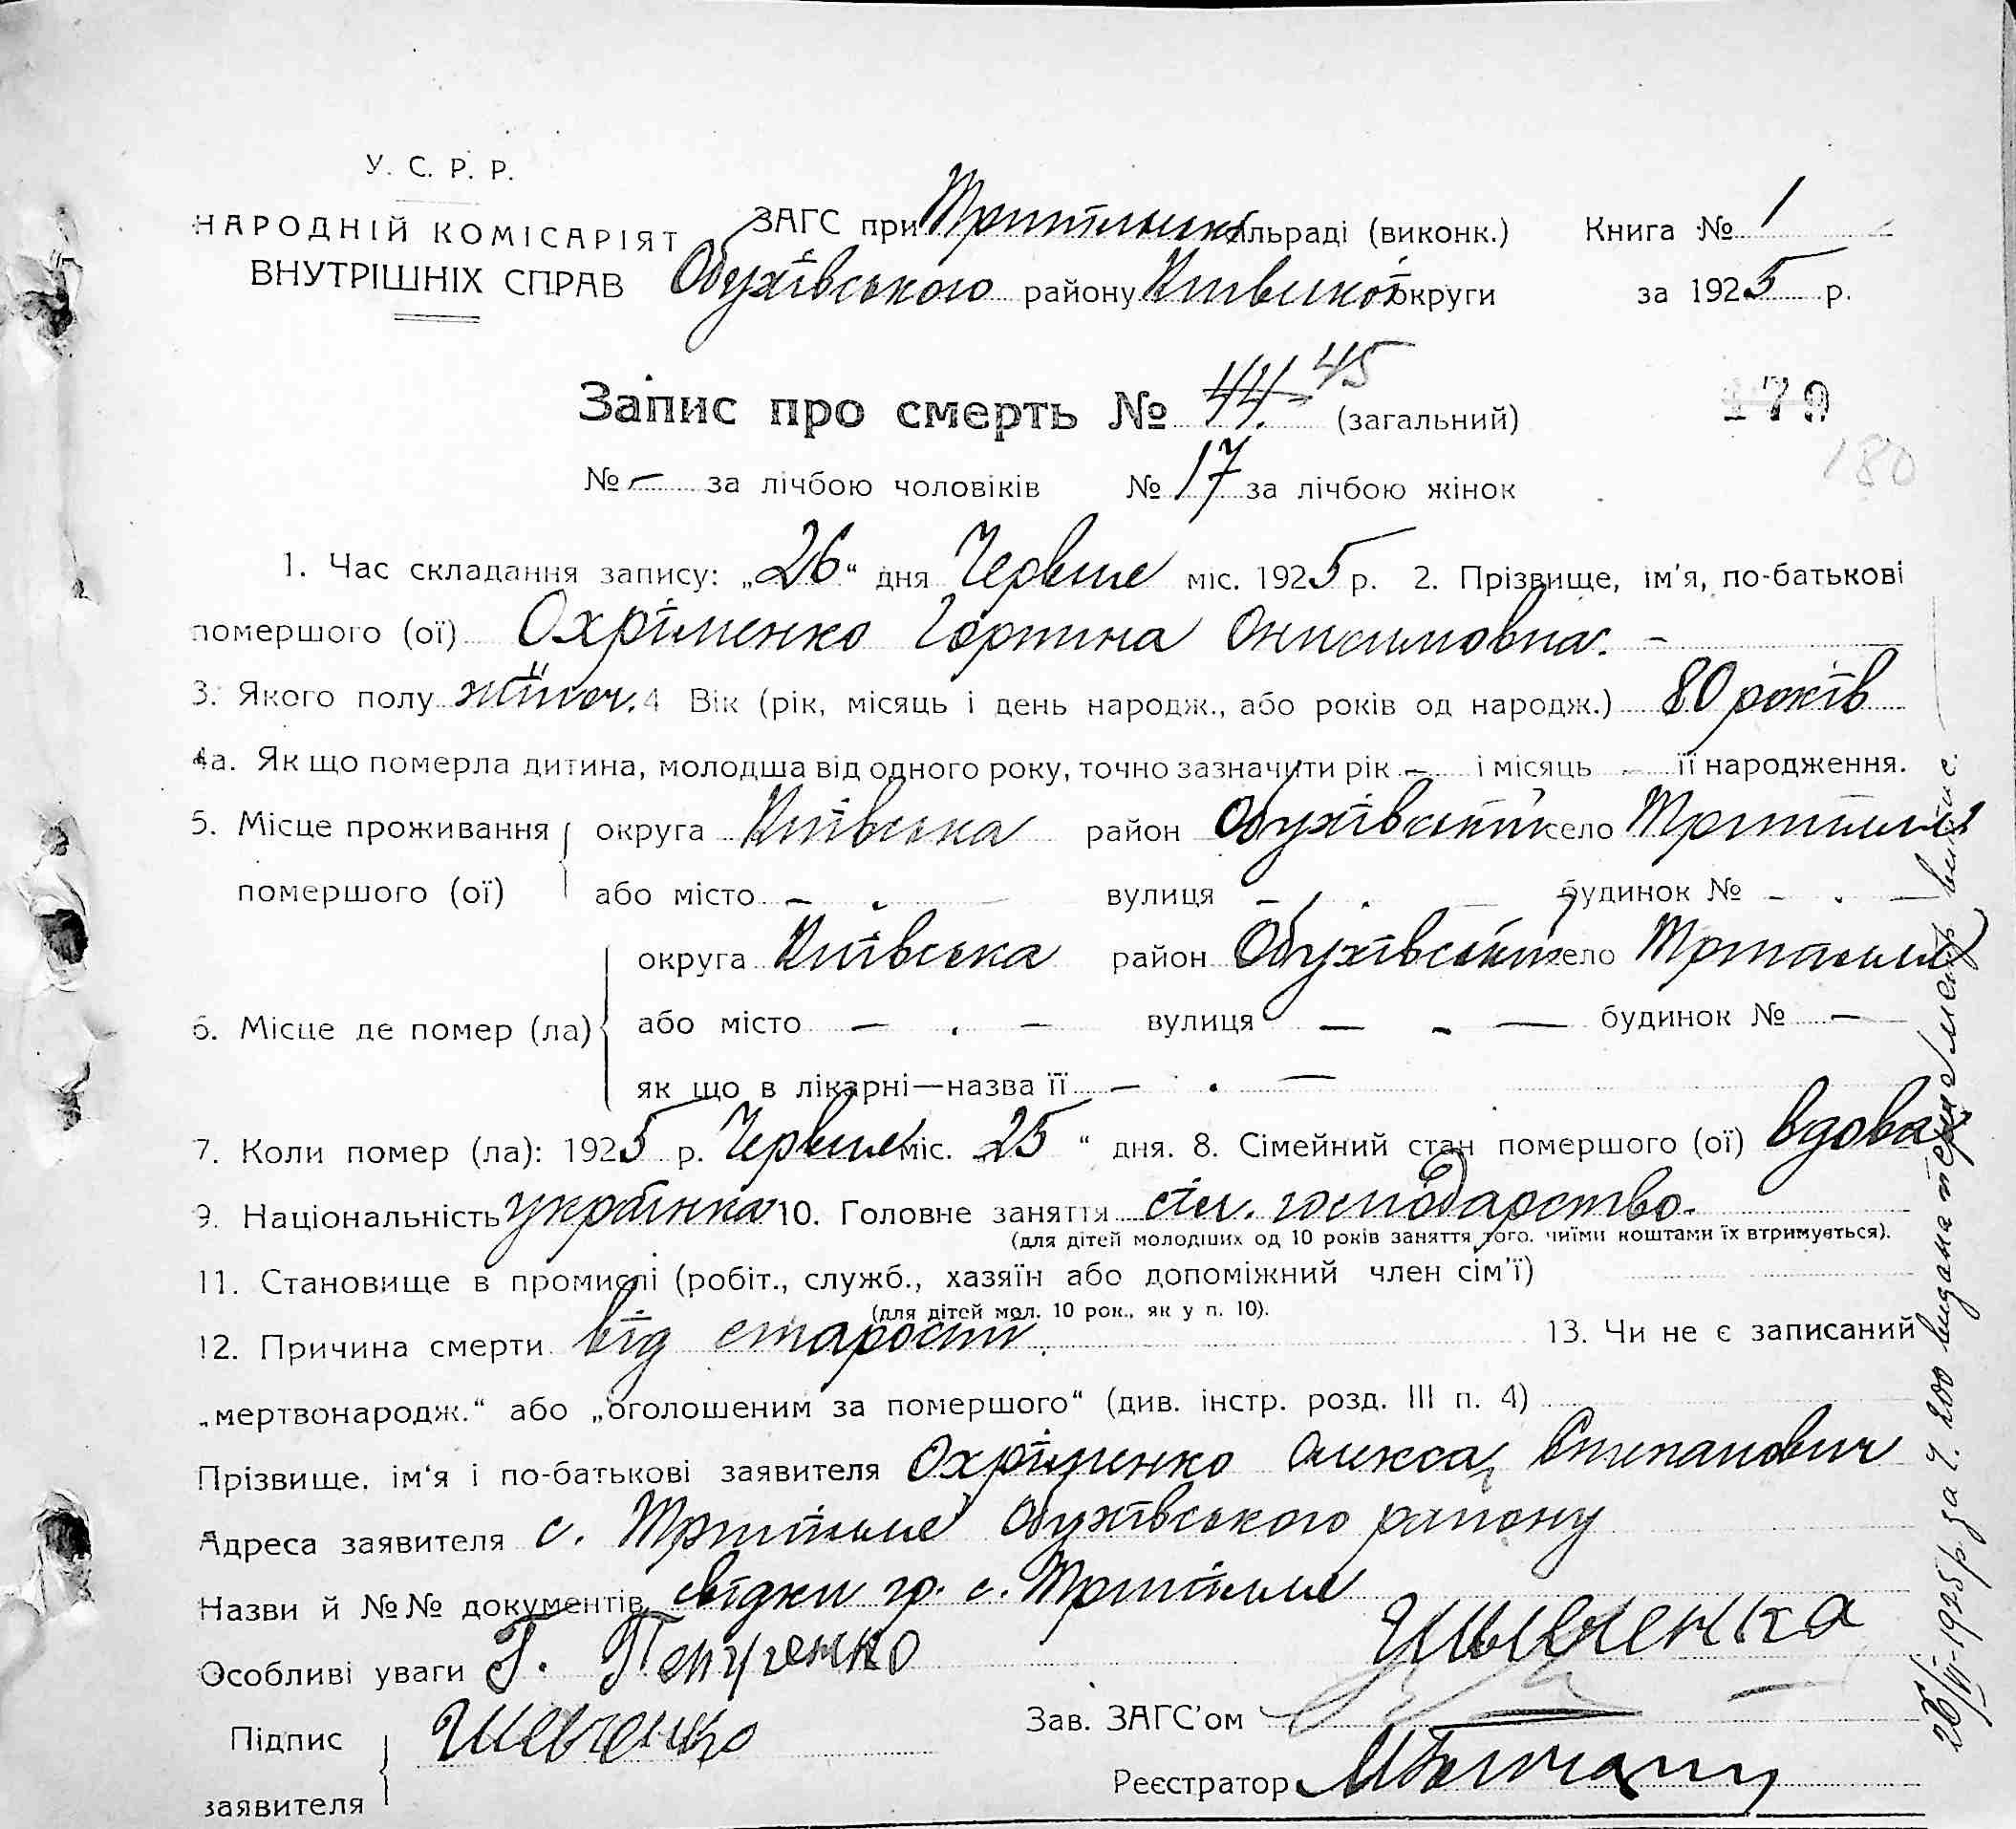 У. С. Р. Р.
НАРОДНІЙ КОМІСАРІЯТ
ВНУТРІШНІХ СПРАВ
ЗАГС при Трипільській сільраді (виконк.)
Обухівського району Київської округи
Книга № 1
за 1925 р.
Запис про смерть № 44. 45 (загальний)
179
180
№ — за лічбою чоловіків № 17 за лічбою жінок
1. Час складання запису: „26“ дня Червня міс. 1925 р. 2. Прізвище, ім'я, по-батькові
помершого (ої) Охріменко Горпина Онисимовна. —
3. Якого полу жіноч. 4 Вік (рік, місяць і день народж., або років од народж.) 80 років
4а. Як що померла дитина, молодша від одного року, точно зазначити рік — і місяць — її народження.
5. Місце проживання помершого (ої) округа Київська район Обухівський село Трипілля
або місто — . вулиця — . — будинок № — . —
6. Місце де помер (ла) округа Київська район Обухівський село Трипілля
або місто — . — вулиця — - — будинок № —
як що в лікарні—назва її — . —
7. Коли помер (ла): 1925 р. Червня міс. 25 “ дня. 8. Сімейний стан помершого (ої) вдова
9. Національність українка 10. Головне заняття сіл. господарство.
(для дітей молодших од 10 років заняття того. чиїми коштами їх втримується).
11. Становище в промислі (робіт., служб., хазяїн або допоміжний член сім'ї)
(для дітей мол. 10 рок., як у п. 10).
12. Причина смерти від старости. 13. Чи не є записаний
„мертвонародж.“ або „оголошеним за помершого“ (див. інстр. розд. III п. 4)
Прізвище. ім'я і по-батькові заявителя Охріменко Олекса Степанович
Адреса заявителя с. Трипілля Обухівського району
Назви й №№ документів свідки гр. с. Трипілля
Особливі уваги Г.
Підпис заявителя Шевченко
Зав. ЗАГС'ом
Реєстратор
26/VI-1925 р. за Ч. 200 видана